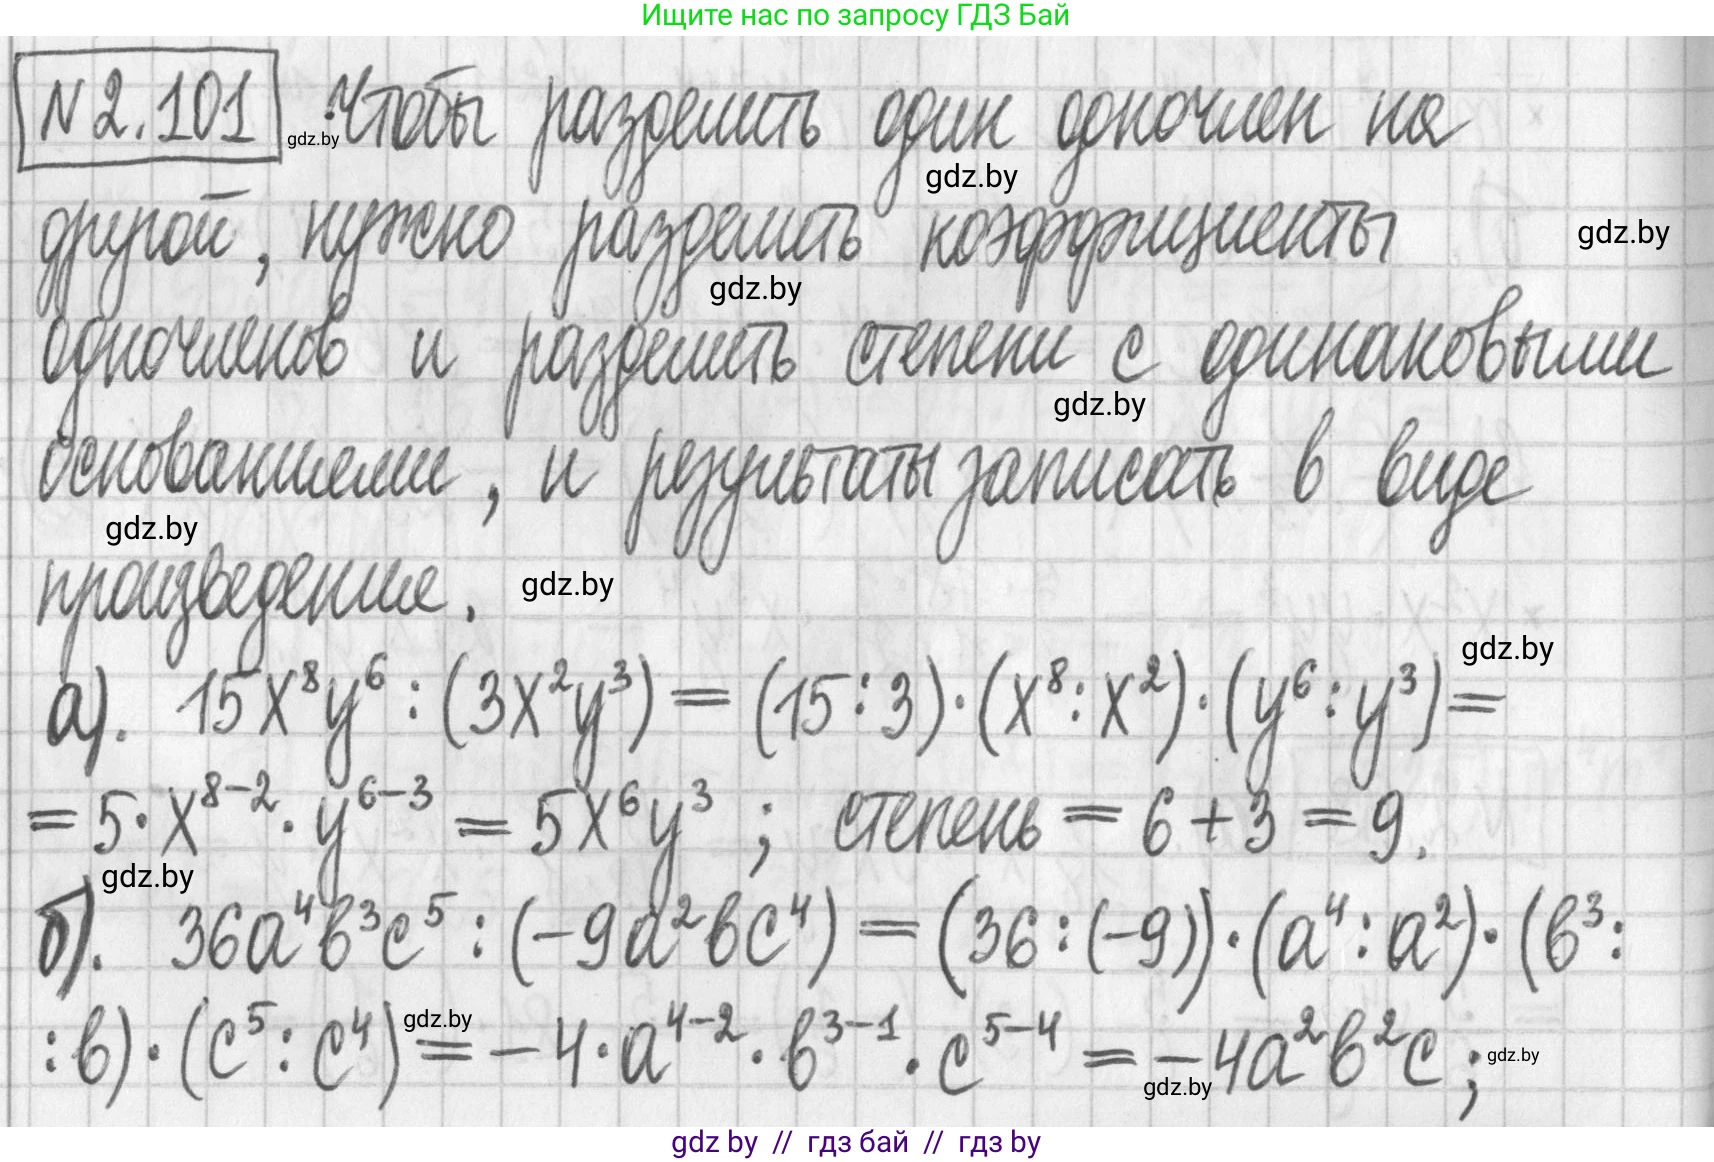 Ищите нас по запросу ГДЗ Бай
№ 2.101 gdz.by Чтобы разделить один одночлен на
gdz.by
другой, нужно разделить коэффициенты gdz.by
gdz.by
одночленов и разделить степени с одинаковыми
gdz.by
основаниями, и результаты записать в виде
gdz.by
произведения. gdz.by
gdz.by
а). 15x⁸y⁶ : (3x²y³) = (15 : 3) · (x⁸ : x²) · (y⁶ : y³) =
= 5 · x⁸⁻² · y⁶⁻³ = 5x⁶y³ ; степень = 6 + 3 = 9.
gdz.by
б). 36a⁴b³c⁵ : (−9a²bc⁴) = (36 : (−9)) · (a⁴ : a²) · (b³ :
: b) · (c⁵ : c⁴) gdz.by = −4 · a⁴⁻² · b³⁻¹ · c⁵⁻⁴ = −4a²b²c ; gdz.by
gdz.by
gdz by // гдз бай // гдз by